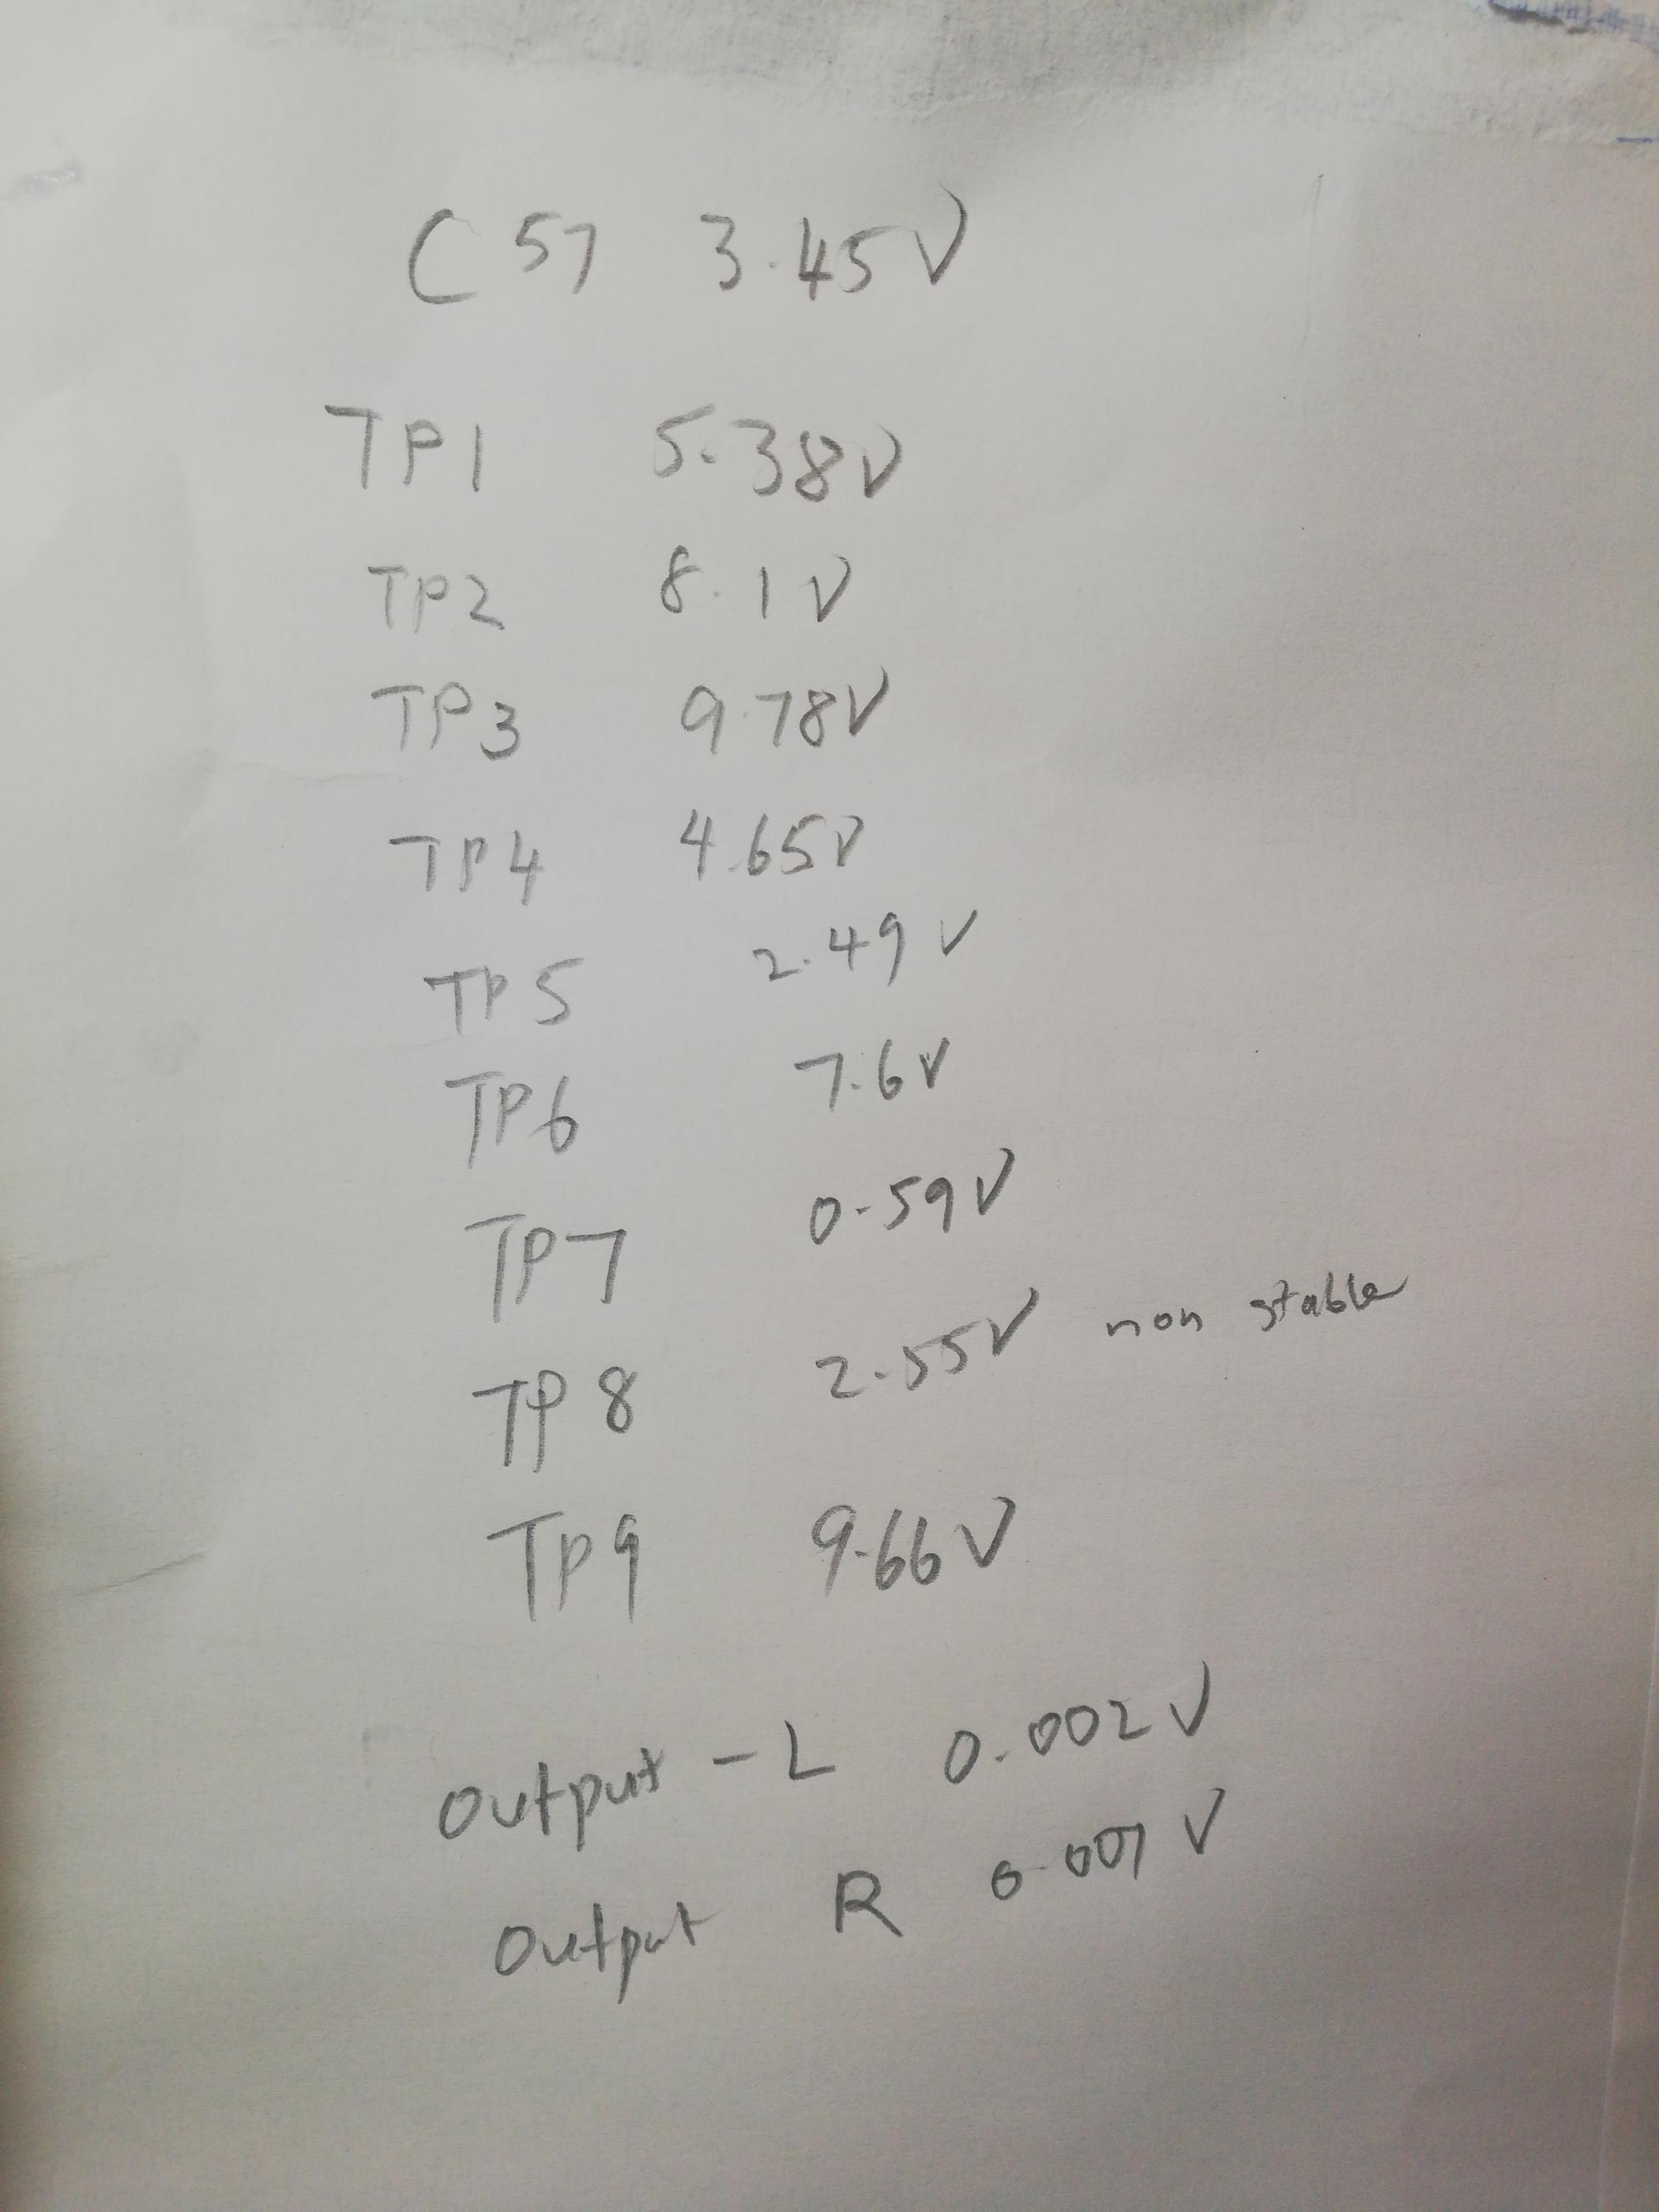 C 57 3.45V
TP1 5.38V
TP2 8.1V
TP3 9.78V
TP4 4.65V
TP5 2.49V
TP6 7.6V
TP7 0.59V
TP8 2.55V non stable
TP9 9.66V
output - L 0.002V
output R 0.001V